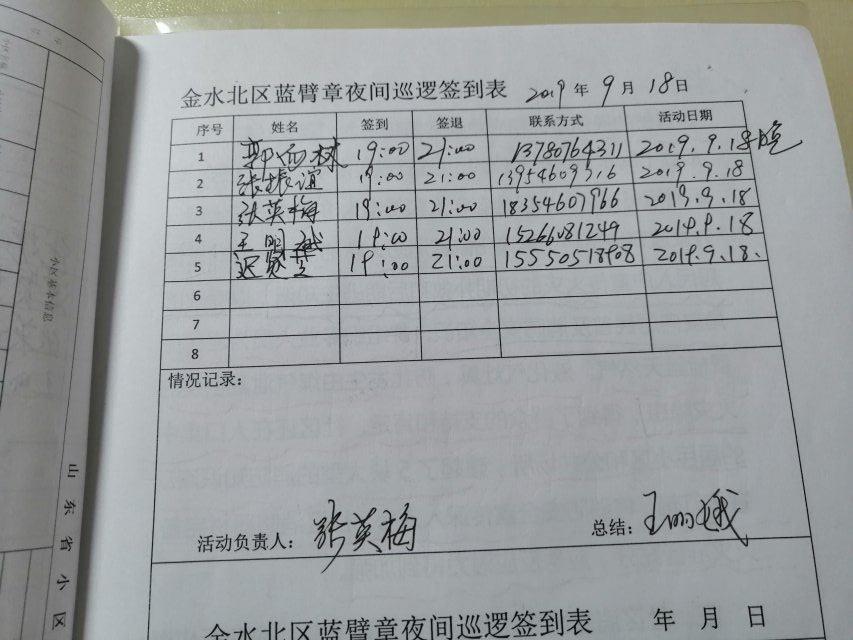 金水北区蓝臂章夜间巡逻签到表 2019 年 9 月 18 日
序号 姓名 签到 签退 联系方式 活动日期
1 19:00 21:00 13780764311 2019.9.18晚
2 张振谊 19:00 21:00 13954609316 2019.9.18
3 张英梅 19:00 21:00 18354607966 2019.9.18
4 王明娥 19:00 21:00 15266081249 2019.9.18
5 19:00 21:00 15550518908 2019.9.18.
6
7
8
情况记录：
活动负责人： 张英梅 总结： 王明娥
金水北区蓝臂章夜间巡逻签到表 年 月 日
小区基本信息
山东省小区